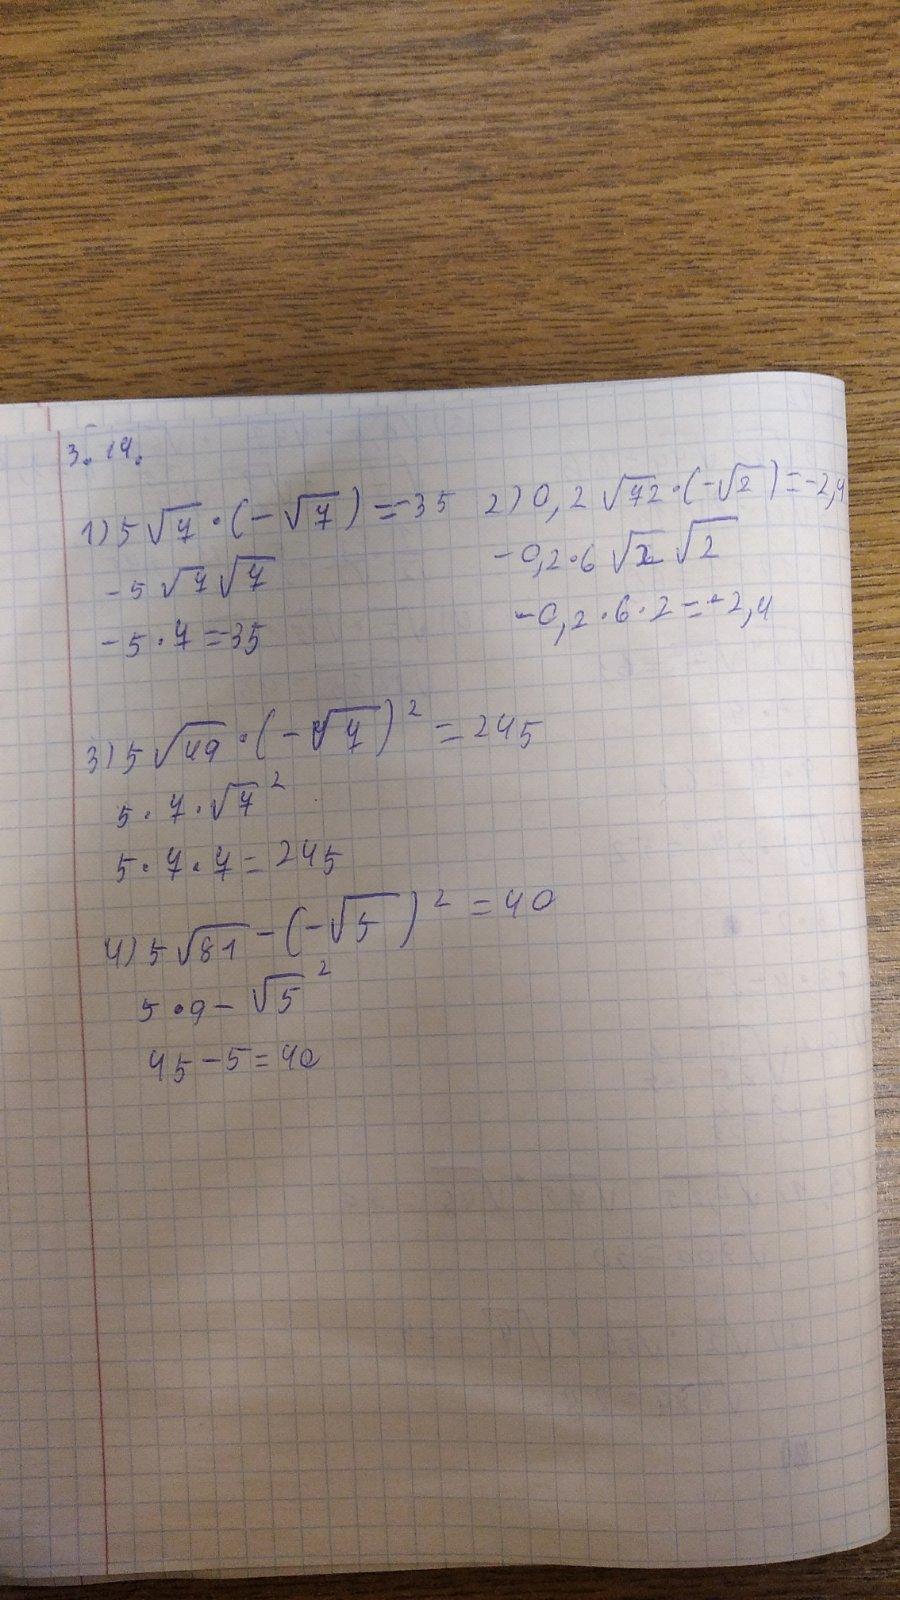 3.14.
1) 5√7 · (-√7) = -35
-5√7√7
-5 · 7 = -35
2) 0,2√72 · (-√2) = -2,4
-0,2 · 6√2√2
-0,2 · 6 · 2 = -2,4
3) 5√49 · (-√7)² = 245
5 · 7 · √7²
5 · 7 · 7 = 245
4) 5√81 - (-√5)² = 40
5 · 9 - √5²
45 - 5 = 40